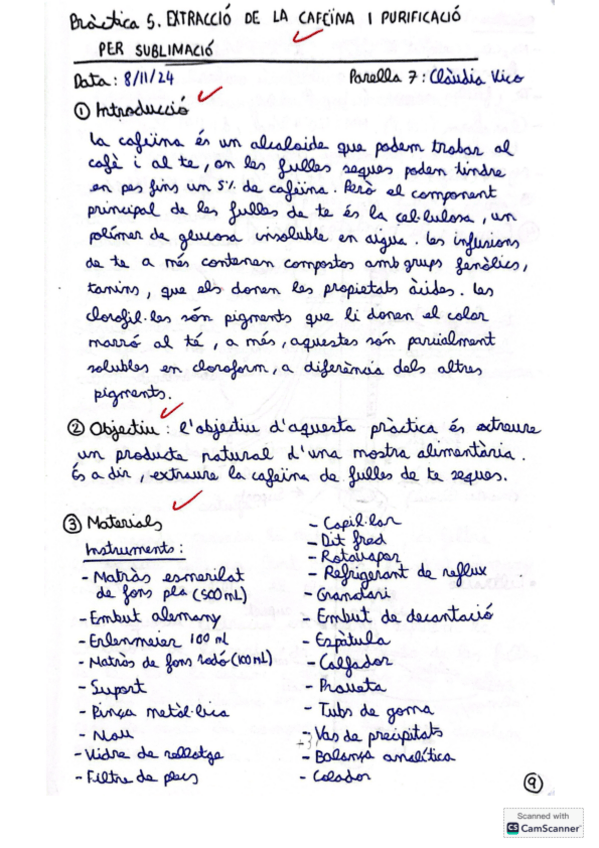 Pràctica 5. EXTRACCIÓ DE LA CAFEÏNA I PURIFICACIÓ
PER SUBLIMACIÓ
Data: 8/11/24
Parella 7: Clàudia Vico
① Introducció
La cafeïna és un alcaloide que podem trobar al
cafè i al te, on les fulles seques poden tindre
en pes fins un 5% de cafeïna. Però el component
principal de les fulles de te és la cel·lulosa, un
polímer de glucosa insoluble en aigua. Les infusions
de te a més contenen compostos amb grups fenòlics,
tanins, que els donen les propietats àcides. Les
clorofil·les són pigments que li donen el color
marró al té, a més, aquestes són parcialment
solubles en cloroform, a diferència dels altres
pigments.
② Objectiu: L'objectiu d'aquesta pràctica és extreure
un producte natural d'una mostra alimentària.
És a dir, extraure la cafeïna de fulles de te seques.
③ Materials
Instruments:
- Matràs esmerilat
de fons pla (500 mL)
- Embut alemany
- Erlenmeier 100 ml
- Matràs de fons rodó (100 mL)
- Suport
- Pinça metàl·lica
- Nou
- Vidre de rellotge
- Filtre de plecs
- Capil·lar
- Dit fred
- Rotavapor
- Refrigerant de reflux
- Granatari
- Embut de decantació
- Espàtula
- Calfador
- Proveta
- Tubs de goma
- Vas de precipitats
- Balança analítica
- Colador
9
Scanned with
CS CamScanner